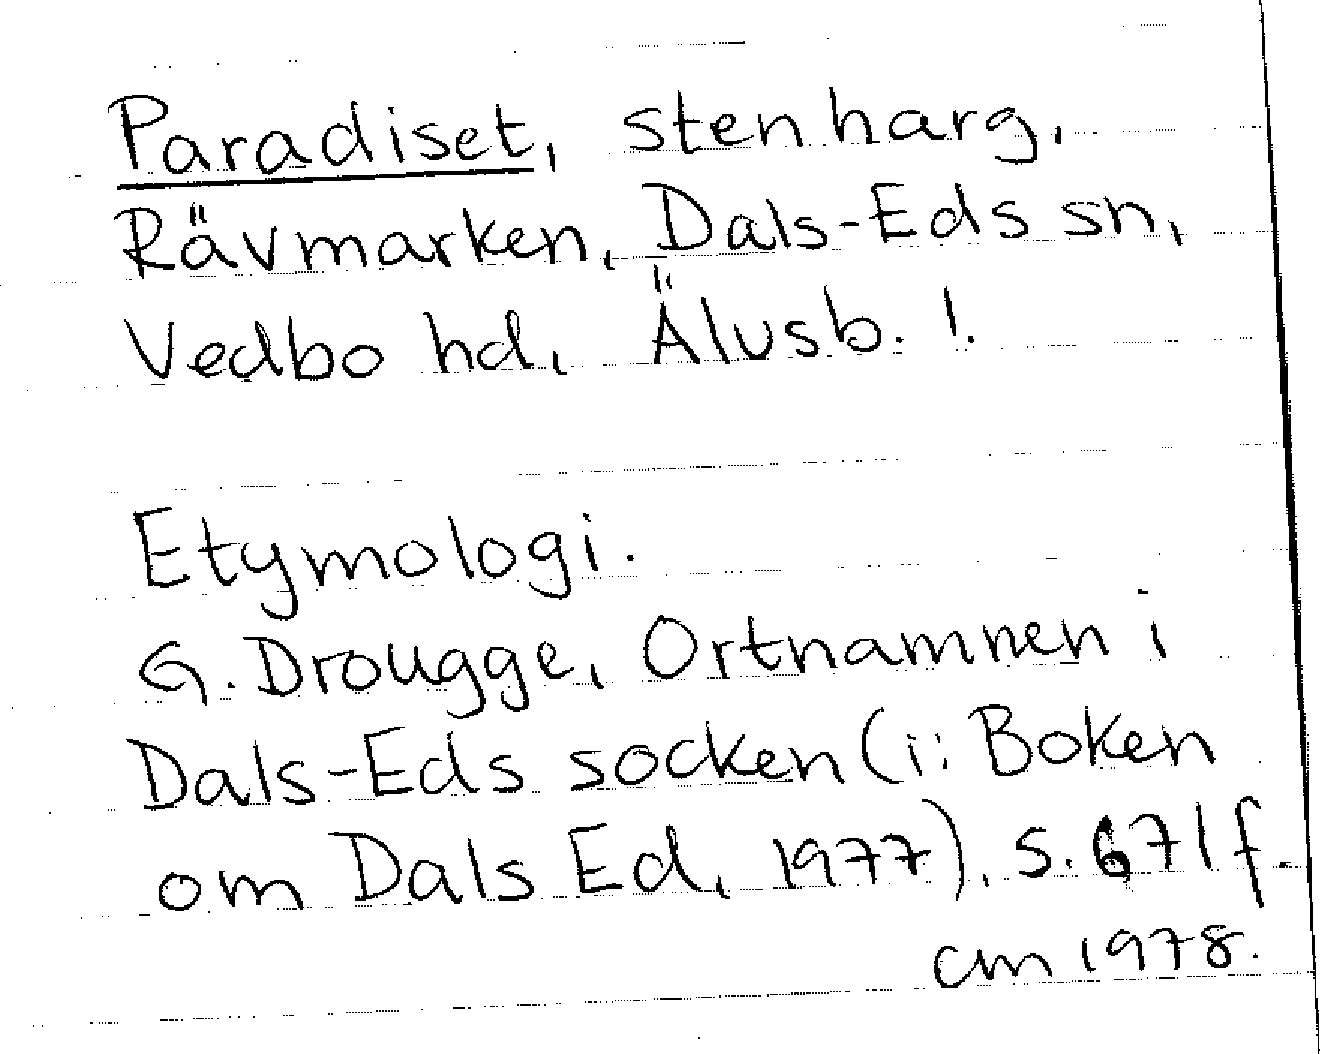 Paradiset, stenharg.
Rävmarken, Dals-Eds sn,
Vedbo hd, Älvsb. l.
Etymologi.
G. Drougge, Ortnamnen i
Dals-Eds socken (i: Boken
om Dals Ed, 1977), s. 671f.
cm 1978.